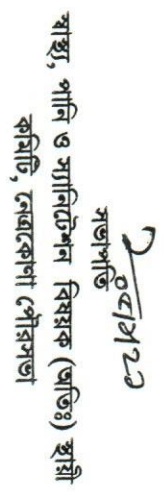 সভাপতি
স্বাস্থ্য, পানি ও স্যানিটেশন বিষয়ক (অতিঃ) স্থায়ী
কমিটি, নেত্রকোণা পৌরসভা